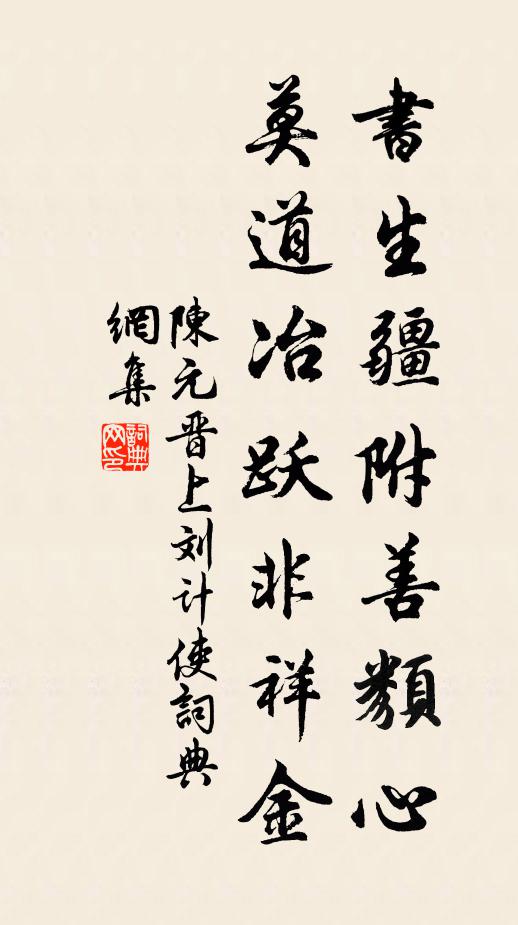 書生疆附善類心
莫道冶跃非祥金
陳元晋上刘计使詞典
網集
詞典
网印